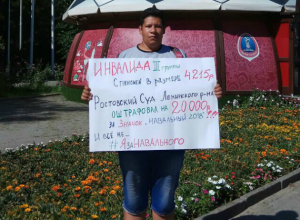 ИНВАЛИДА II группы
с пенсией в размере 4215р
Ростовский Суд Ленинского р-на
ОШТРАФОВАЛ НА 20000р
за Значок "НАВАЛЬНЫЙ 2018"
И всё же...
#ЯзаНАВАЛЬНОГО